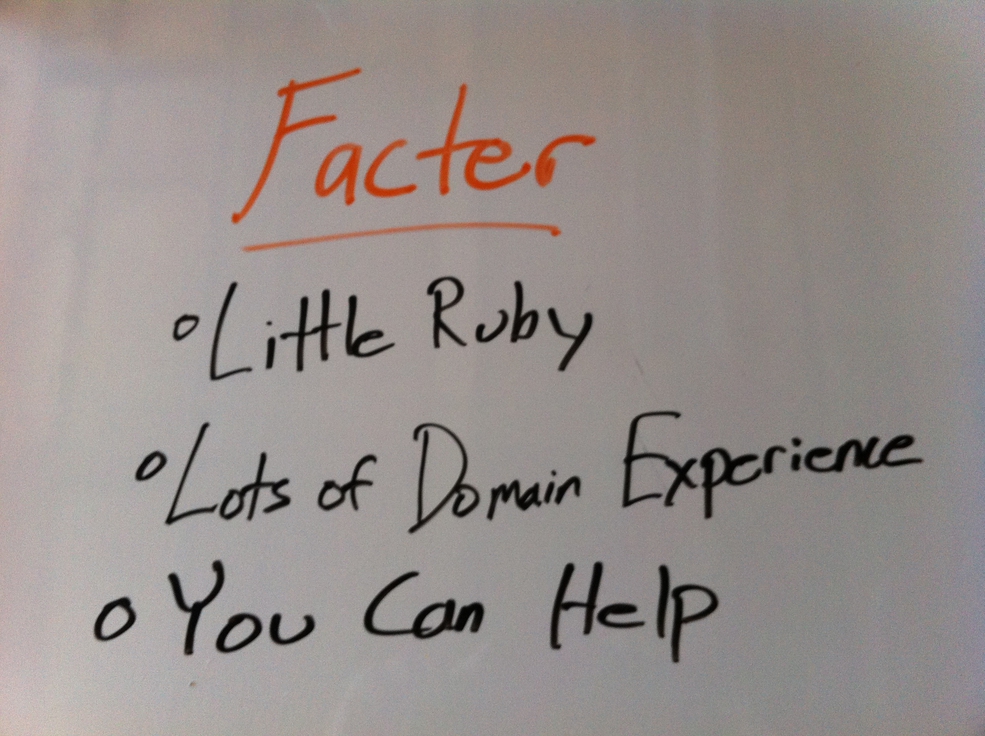 Facter
Little Ruby
Lots of Domain Experience
You Can Help